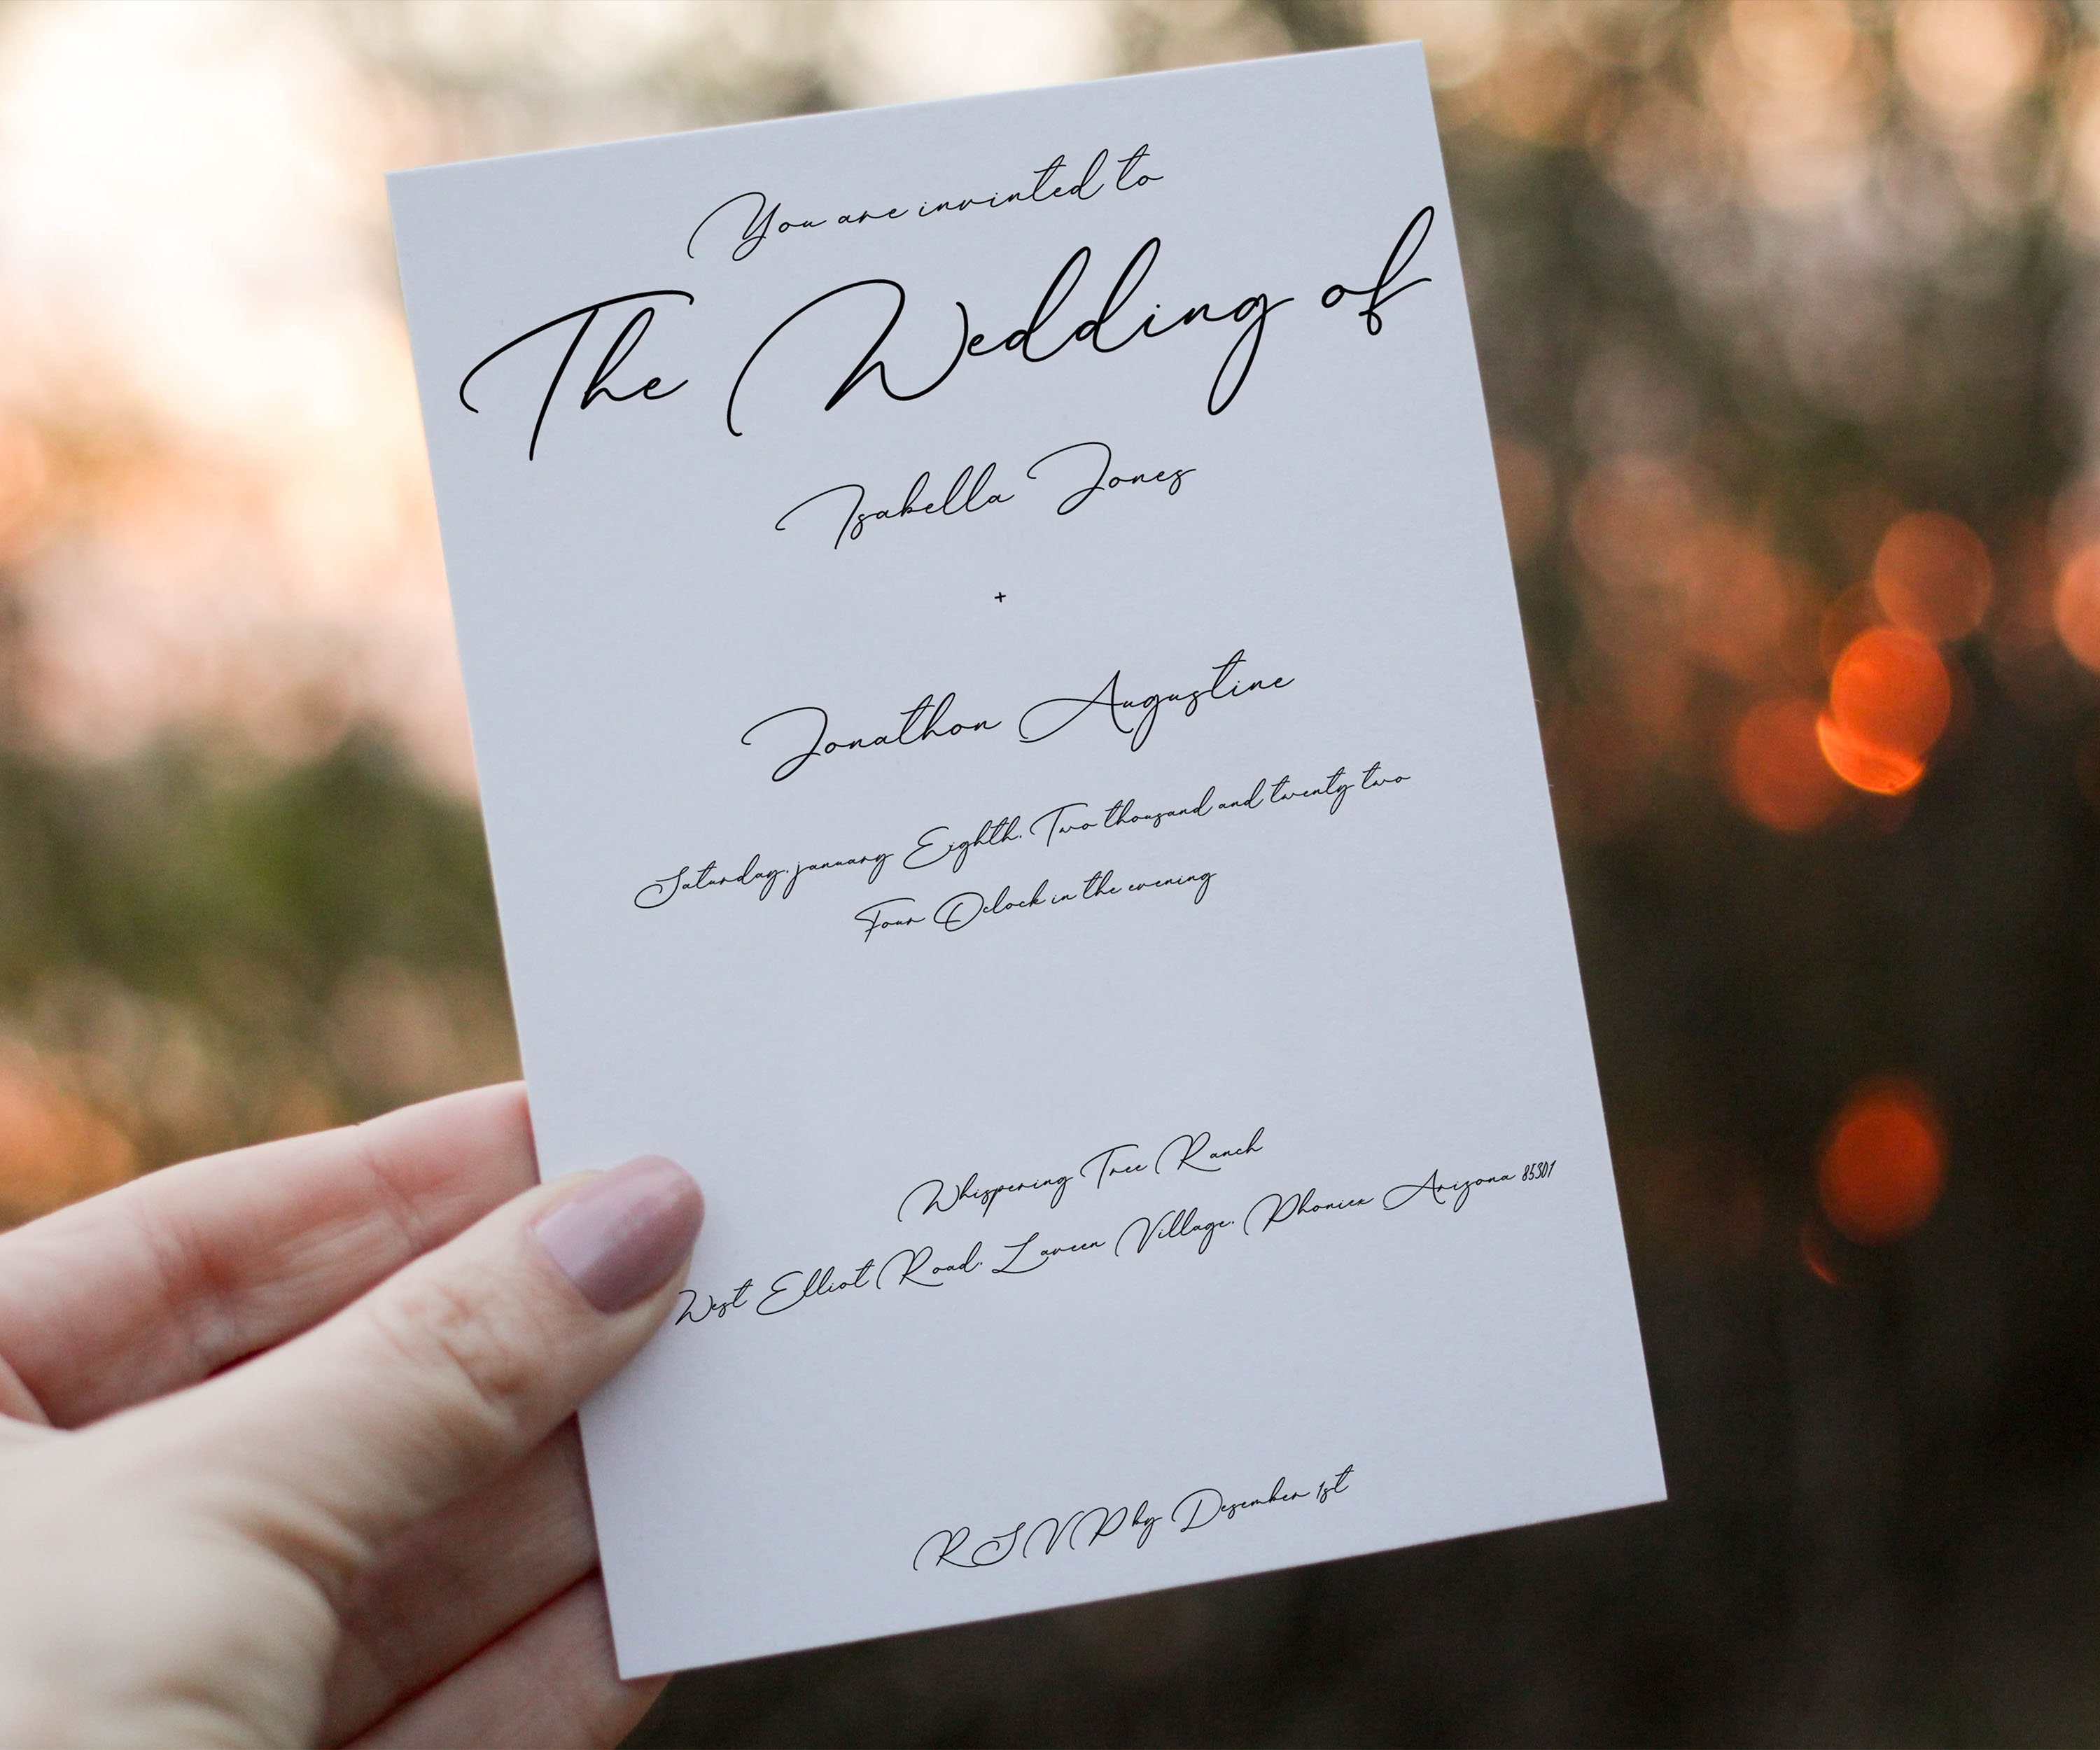 You are invinted to
The Wedding of
Isabella Jones
+
Jonathon Augustine
Saturday, january Eighth, Two thousand and twenty two
Four Oclock in the evening
Whispering Tree Ranch
West Elliot Road, Laveen Village, Phoniex Arizona 85301
R S V P by Desember 1st